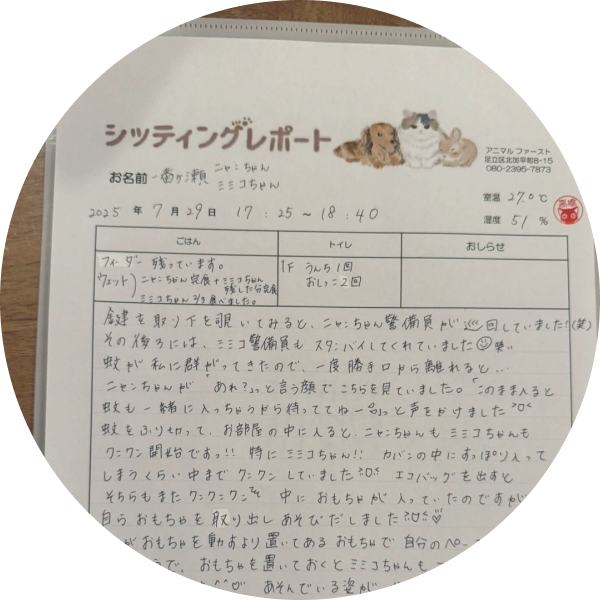 シッティングレポート
アニマル ファースト
足立区北加平町8-15
080-2395-7873
お名前 一番ヶ瀬 ニャンちゃん
ミミコちゃん
室温 27.0℃
2025 年 7月 29日 17:25~18:40
湿度 51 %
ごはん トイレ おしらせ
フィーダー 残っています。
ウェット) ニャンちゃん完食+ミミコちゃん
残した分完食
ミミコちゃん 2/3 食べました。
1F うんち1回
おしっこ2回
鍵を取り下を覗いてみると、ニャンちゃん警備員が巡回していました!(笑)
その後ろには、ミミコ警備員もスタンバイしてくれていました 笑
蚊が私に群がってきたので、一度勝手口から離れると…
ニャンちゃんが「あれ?」っと言う顔でこちらを見ていました。「このまま入ると
蚊も一緒に入っちゃうから待っててね〜」っと声をかけました
蚊をふり切って、お部屋の中に入ると、ニャンちゃんもミミコちゃんも
クンクン開始ですっ!! 特にミミコちゃん!! カバンの中にすっぽり入って
しまうくらい中までクンクンしていました エコバッグを出すと
そちらもまたクンクンクン 中におもちゃが入っていたのですが
自らおもちゃを取り出しあそびだしました♡
がおもちゃを動すより置いてあるおもちゃで自分のペー
で、おもちゃを置いておくとミミコちゃんも
あそんでいる姿が